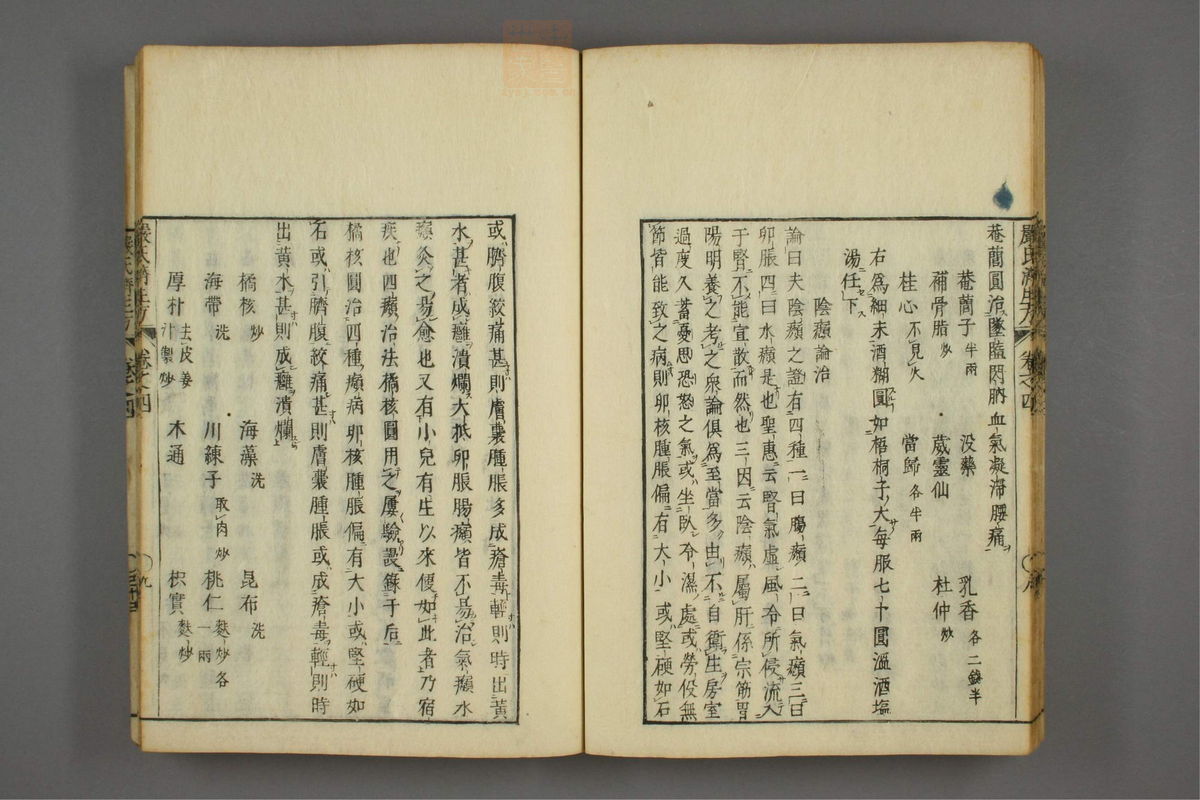 菴䕡圓治墜臨閃肭血氣凝滯腰痛
菴䕡子半兩　没藥　乳香各二錢半
補骨脂炒　威靈仙　杜仲炒
桂心不見火　當歸各半兩
右爲細末酒糊圓如梧桐子大每服七十圓溫酒塩
湯任下
陰㿗論治
論曰夫陰㿗之證有四種一曰腸㿗二曰氣㿗三曰
卵脹四曰水㿗是也聖惠云腎氣虛風冷所侵流入
于腎不能宣散而然也三因云陰㿗屬肝係宗筋胃
陽明養之考之衆論俱爲至當多由不自衛生房室
過度久蓄憂思恐怒之氣或坐臥冷濕處或勞役無
節皆能致之病則卵核腫脹偏右大小或堅硬如石
或臍腹絞痛甚則膚囊腫脹多成瘡毒輕則時出黃
水甚者成癰潰爛大抵卵脹腸㿗皆不易治氣㿗水
㿗灸之易愈也又有小兒有生以來便如此者乃宿
疾也四㿗治法橘核圓用之屢驗謾錄于后
橘核圓治四種㿗病卵核腫脹偏有大小或堅硬如
石或引臍腹絞痛甚則膚囊腫脹或成瘡毒輕則時
出黃水甚則成癰潰爛
橘核炒　海藻洗　昆布洗
海帶洗　川練子取肉炒　桃仁麩炒各一兩
厚朴去皮姜汁製炒　木通　枳實麩炒
嚴氏濟生方　卷之四
九